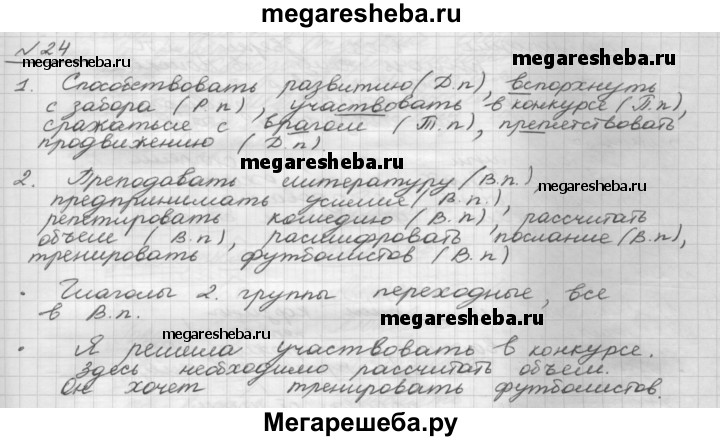 megaresheba.ru
№ 24
megaresheba.ru
1. Способствовать развитию (Д.п), вспорхнуть
с забора (Р.п), участвовать в конкурсе (П.п),
сражаться с врагом (Т.п), препятствовать
продвижению (Д.п).
megaresheba.ru
2. Преподавать литературу (В.п.)
megaresheba.ru
предпринимать усилия (В.п.),
репетировать комедию (В.п), рассчитать
объем (В.п), расшифровать послание (В.п),
тренировать футболистов (В.п)
megaresheba.ru
· Глаголы 2. группы переходные, все
в В.п.
megaresheba.ru
megaresheba.ru
· Я решила участвовать в конкурсе.
Здесь необходимо рассчитать объем.
Он хочет тренировать футболистов.
megaresheba.ru
Мегарешеба.ру